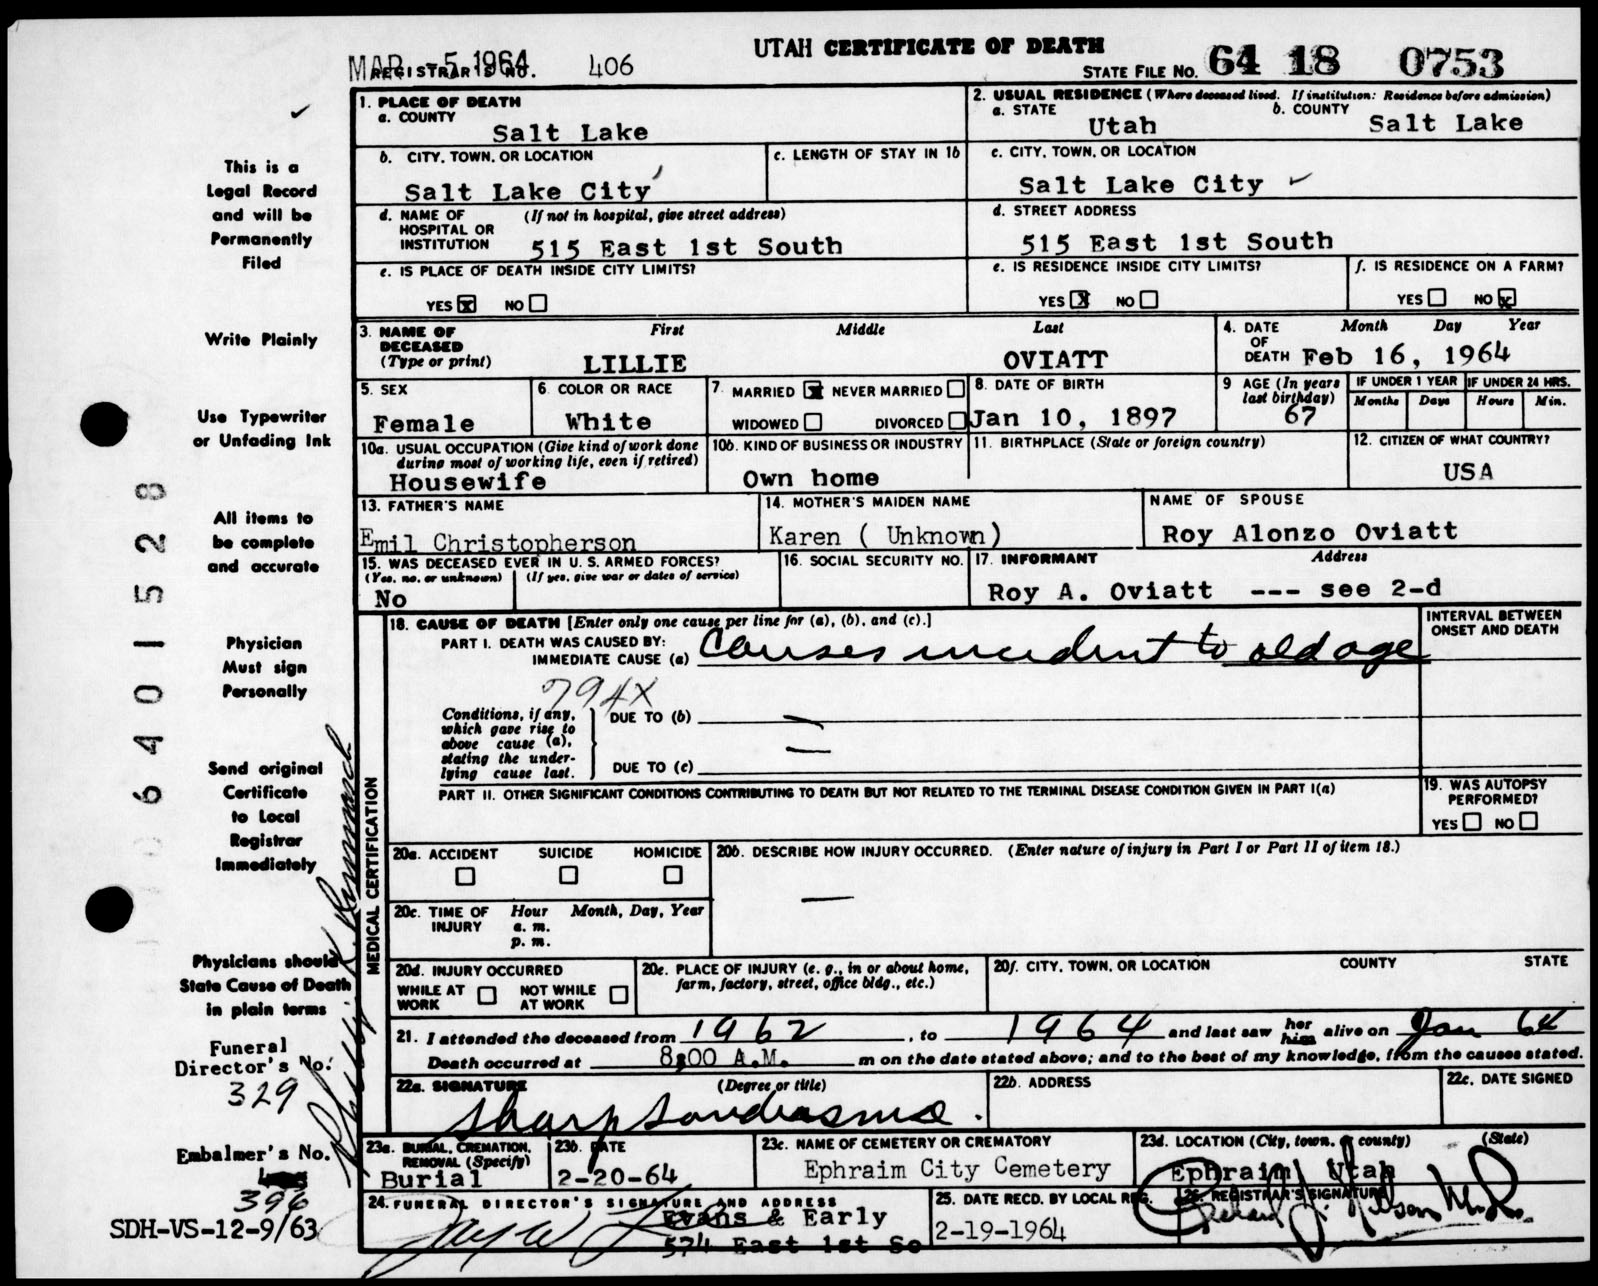 UTAH CERTIFICATE OF DEATH
MAR - 5 1964
REGISTRAR'S NO. 406
STATE FILE NO. 64 18 0753
1. PLACE OF DEATH
a. COUNTY
Salt Lake
2. USUAL RESIDENCE (Where deceased lived. If institution: Residence before admission)
a. STATE b. COUNTY
Utah Salt Lake
b. CITY, TOWN, OR LOCATION
Salt Lake City
c. LENGTH OF STAY IN 1b
c. CITY, TOWN, OR LOCATION
Salt Lake City
d. NAME OF HOSPITAL OR INSTITUTION (If not in hospital, give street address)
515 East 1st South
d. STREET ADDRESS
515 East 1st South
e. IS PLACE OF DEATH INSIDE CITY LIMITS?
YES X NO
e. IS RESIDENCE INSIDE CITY LIMITS?
YES X NO
f. IS RESIDENCE ON A FARM?
YES NO X
3. NAME OF DECEASED (Type or print)
First Middle Last
LILLIE OVIATT
4. DATE OF DEATH Month Day Year
Feb 16, 1964
5. SEX
Female
6. COLOR OR RACE
White
7. MARRIED X NEVER MARRIED
WIDOWED DIVORCED
8. DATE OF BIRTH
Jan 10, 1897
9 AGE (In years last birthday)
67
IF UNDER 1 YEAR IF UNDER 24 HRS.
Months Days Hours Min.
10a. USUAL OCCUPATION (Give kind of work done during most of working life, even if retired)
Housewife
10b. KIND OF BUSINESS OR INDUSTRY
Own home
11. BIRTHPLACE (State or foreign country)
12. CITIZEN OF WHAT COUNTRY?
USA
13. FATHER'S NAME
Emil Christopherson
14. MOTHER'S MAIDEN NAME
Karen ( Unknown)
NAME OF SPOUSE
Roy Alonzo Oviatt
15. WAS DECEASED EVER IN U. S. ARMED FORCES?
(Yes, no, or unknown) (If yes, give war or dates of service)
No
16. SOCIAL SECURITY NO.
17. INFORMANT Address
Roy A. Oviatt --- see 2-d
MEDICAL CERTIFICATION
18. CAUSE OF DEATH [Enter only one cause per line for (a), (b), and (c).]
INTERVAL BETWEEN ONSET AND DEATH
PART I. DEATH WAS CAUSED BY:
IMMEDIATE CAUSE (a) Causes incident to old age
794X
Conditions, if any,
which gave rise to
above cause (a),
stating the under-
lying cause last.
DUE TO (b) —
DUE TO (c) —
PART II. OTHER SIGNIFICANT CONDITIONS CONTRIBUTING TO DEATH BUT NOT RELATED TO THE TERMINAL DISEASE CONDITION GIVEN IN PART I(a)
19. WAS AUTOPSY PERFORMED?
YES NO
20a. ACCIDENT SUICIDE HOMICIDE
20b. DESCRIBE HOW INJURY OCCURRED. (Enter nature of injury in Part I or Part II of item 18.)
—
20c. TIME OF INJURY Hour Month, Day, Year
a. m.
p. m.
20d. INJURY OCCURRED
WHILE AT WORK NOT WHILE AT WORK
20e. PLACE OF INJURY (e. g., in or about home, farm, factory, street, office bldg., etc.)
20f. CITY, TOWN, OR LOCATION COUNTY STATE
21. I attended the deceased from 1962, to 1964 and last saw her him alive on Jan 64
Death occurred at 8:00 A.M. m on the date stated above; and to the best of my knowledge, from the causes stated.
22a. SIGNATURE (Degree or title)
22b. ADDRESS
22c. DATE SIGNED
23a. BURIAL, CREMATION, REMOVAL (Specify)
Burial
23b. DATE
2-20-64
23c. NAME OF CEMETERY OR CREMATORY
Ephraim City Cemetery
23d. LOCATION (City, town, or county) (State)
Ephraim, Utah
24. FUNERAL DIRECTOR'S SIGNATURE AND ADDRESS
Evans & Early
574 East 1st So
25. DATE RECD. BY LOCAL REG.
2-19-1964
26. REGISTRAR'S SIGNATURE
This is a
Legal Record
and will be
Permanently
Filed
Write Plainly
Use Typewriter
or Unfading Ink
All items to
be complete
and accurate
Physician
Must sign
Personally
Send original
Certificate
to Local
Registrar
Immediately
Physicians should
State Cause of Death
in plain terms
Funeral
Director's No.
329
Embalmer's No.
396
SDH-VS-12-9/63
6401528